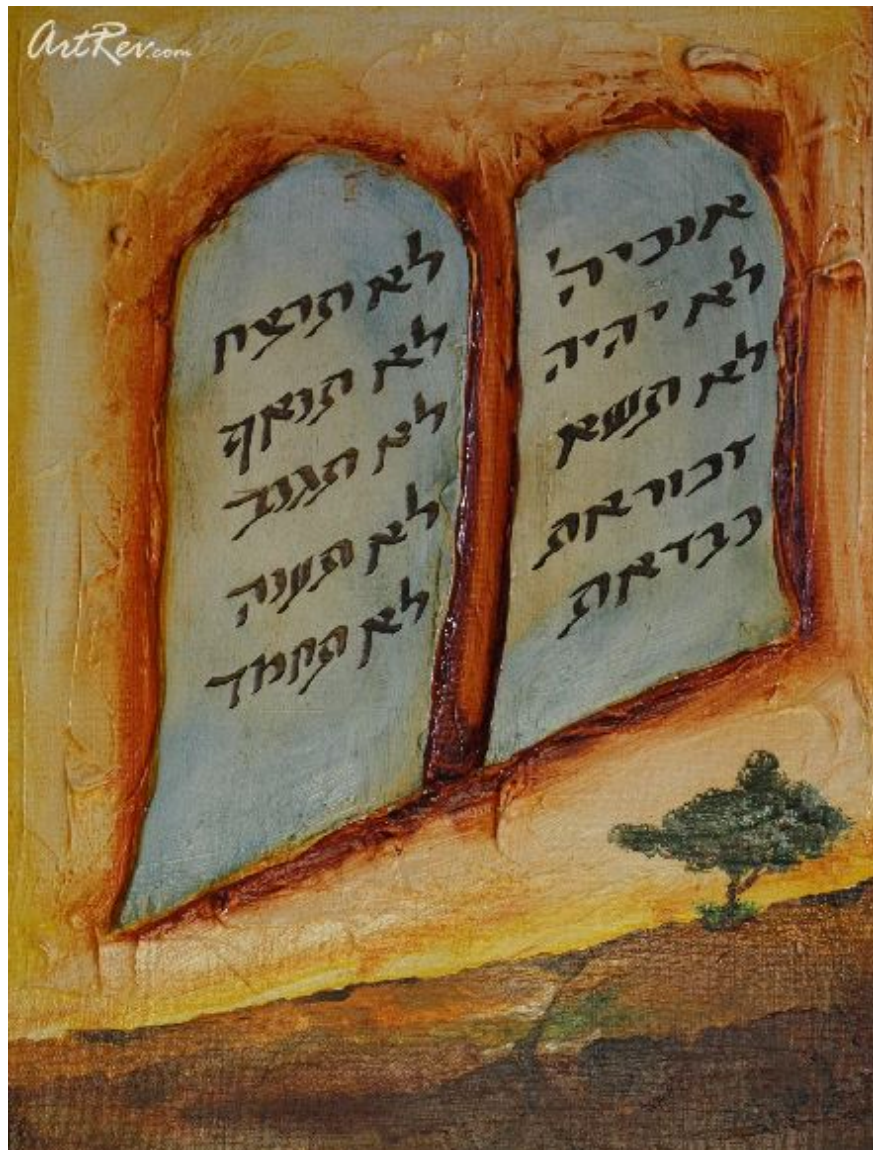 ArtRev.com
אנכיה'
לא יהיה
לא תשא
זכוראת
כבדאת
לא תרצח
לא תנאף
לא תגנב
לא תענה
לא תחמד